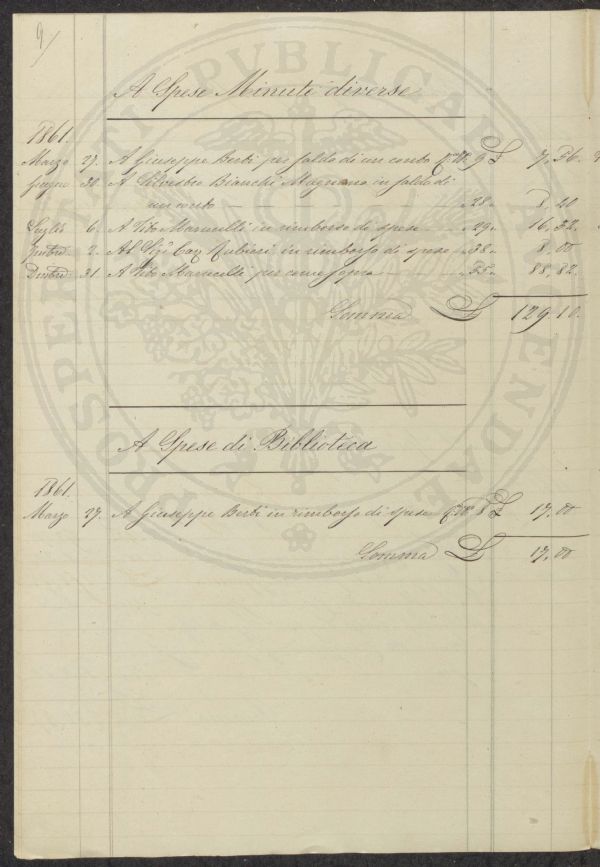 9/
PROSPERITATI PUBLICAE AUGENDAE
A Spese Minute diverse
1861.
Marzo 27. A Giuseppe Berti per saldo di un conto 9 £ 7,56.
Giugno 30. A Silvestro Bianchi Magnano in saldo di
un conto — — — " 28 " 8.20
Luglio 6. A Vito Marucelli in rimborso di spese " 29 " 16,52.
2. Al Sigr Cav Rubieri in rimborso di spese " 38 " 8,00
Dcmbre 31. A Vito Marucelli per come sopra — " 55 " 88,82.
Somma £ 129.10.
A Spese di Biblioteca
1861.
Marzo 27. A Giuseppe Berti in rimborso di spese 8 £ 17,00
Somma £ 17,00